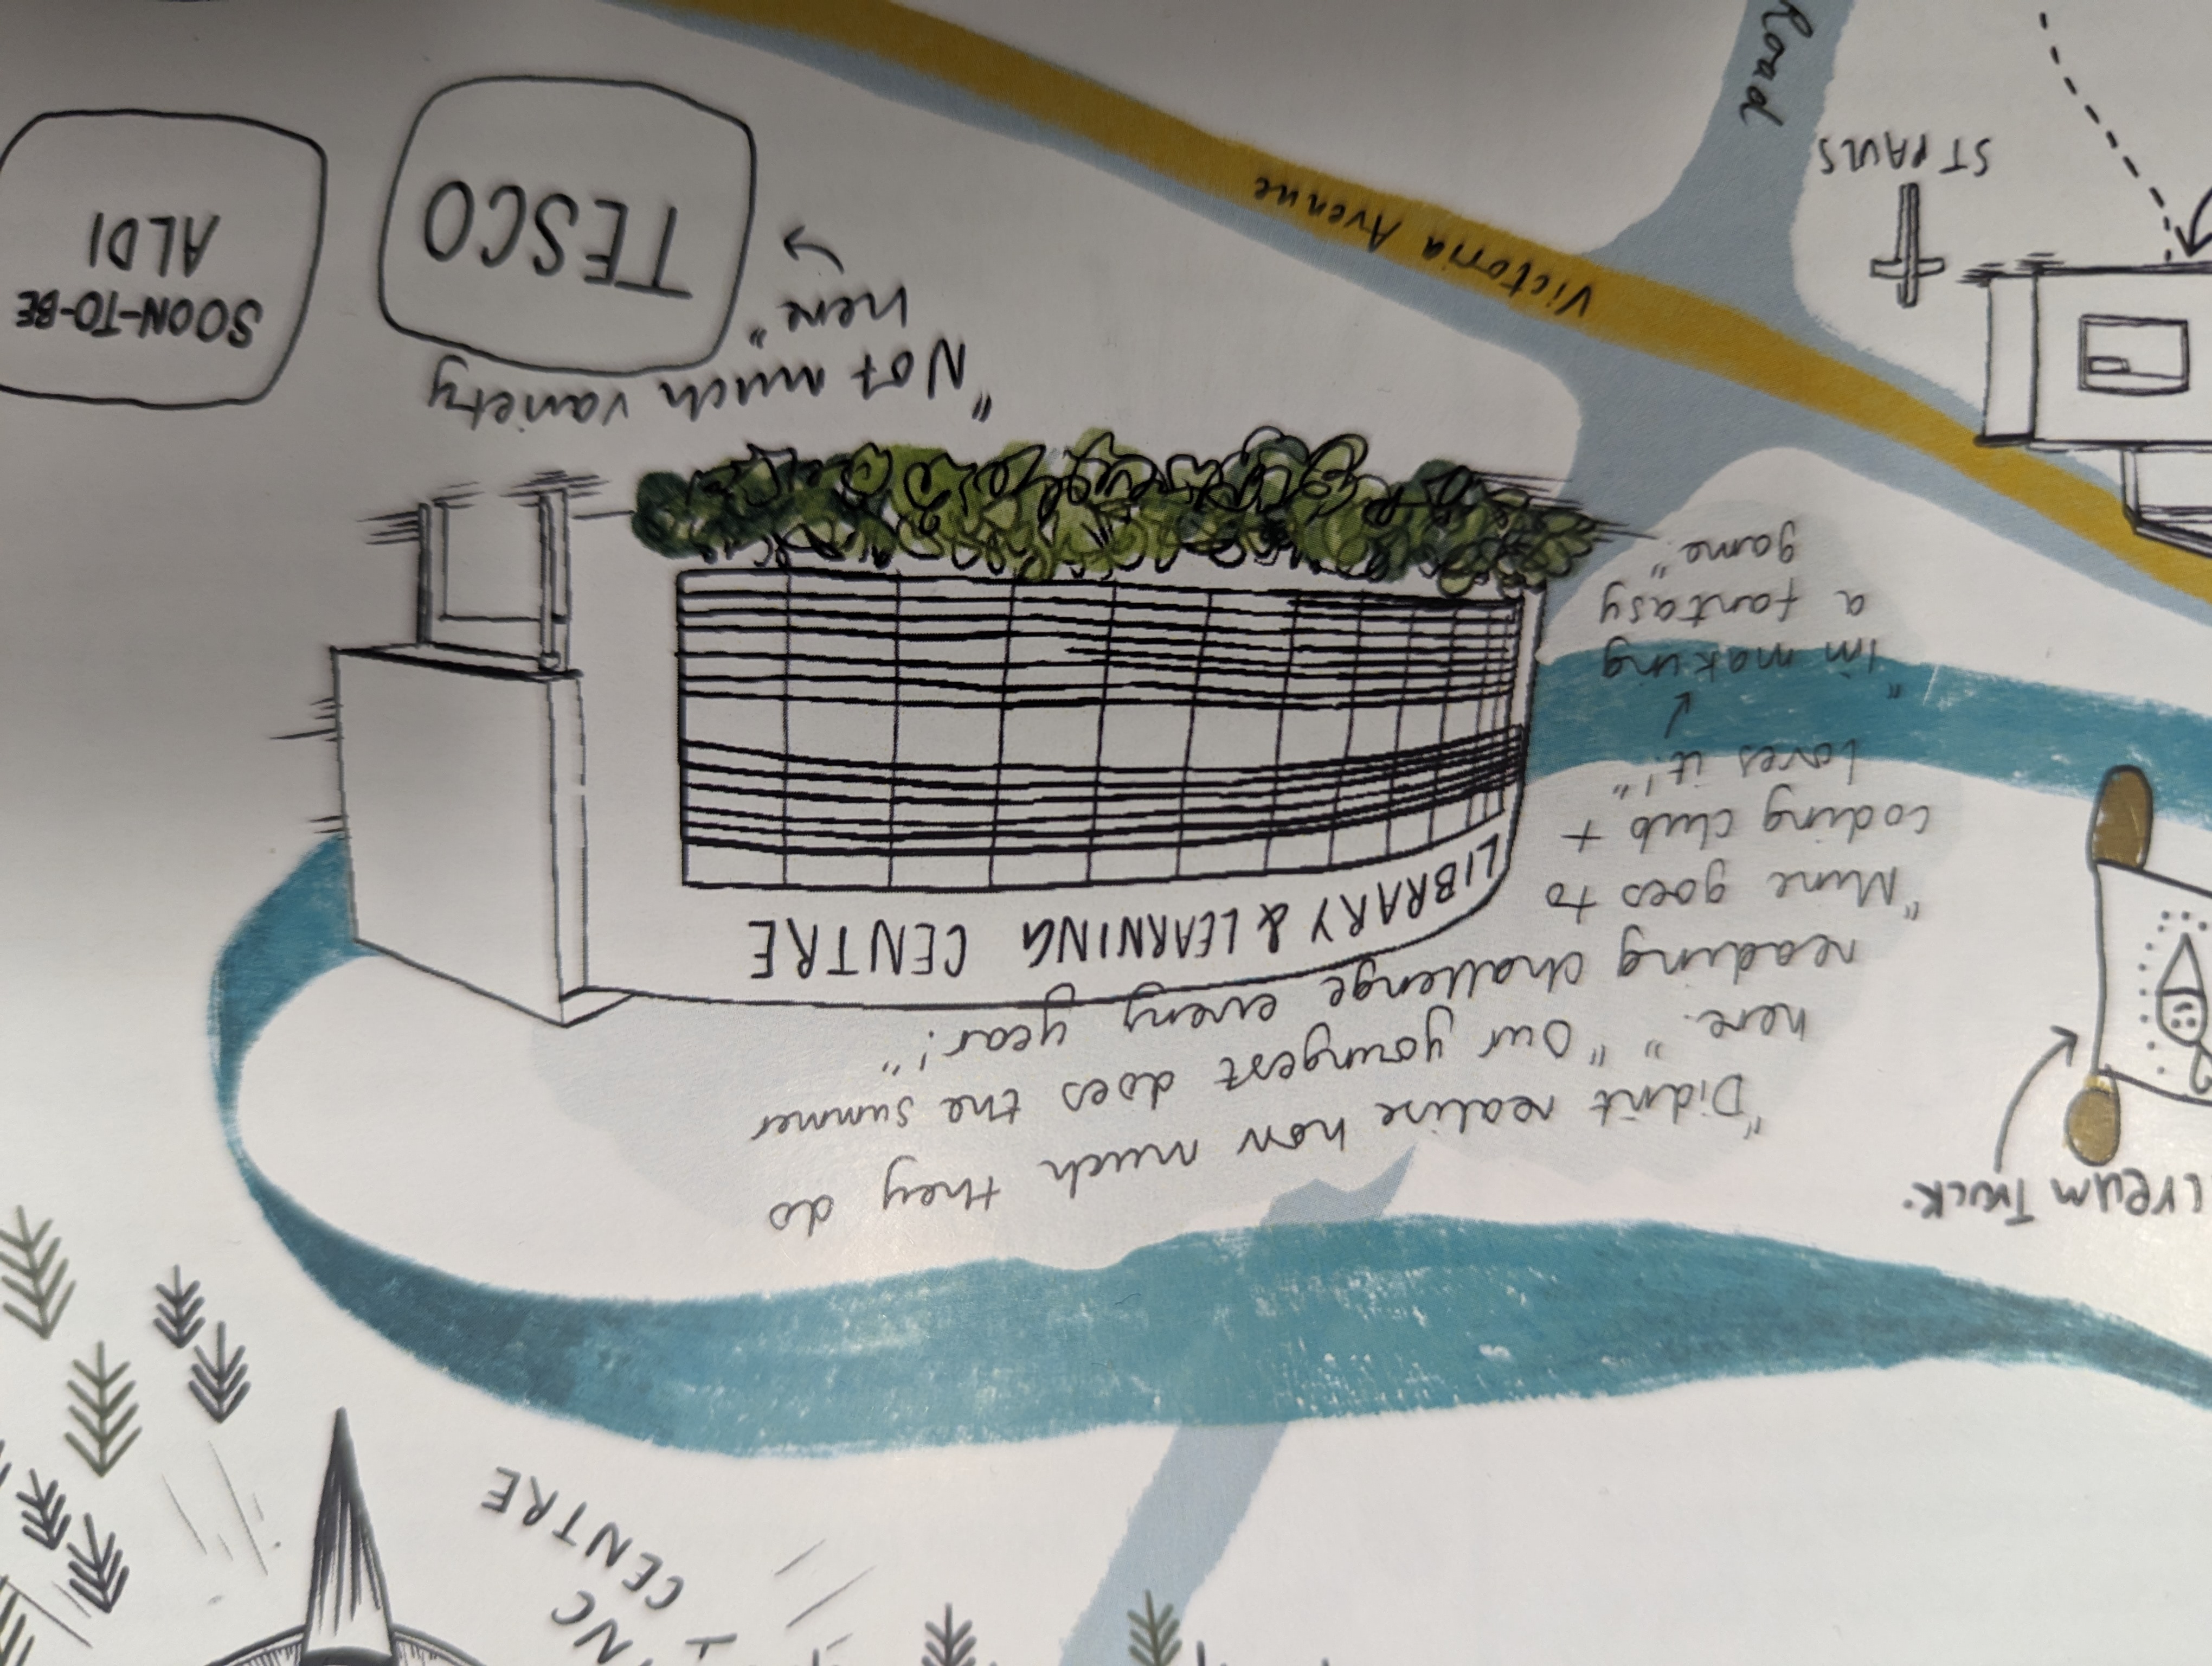 NC
Y CENTRE
cream Truck.
"Didn't realise how much they do
here." "Our youngest does the summer
reading challenge every year!"
"Mine goes to
coding club +
loves it!"
"I'm making
a fantasy
game."
LIBRARY & LEARNING CENTRE
"Not much variety
here"
TESCO
SOON-TO-BE
ALDI
Victoria Avenue
ST PAULS
Road